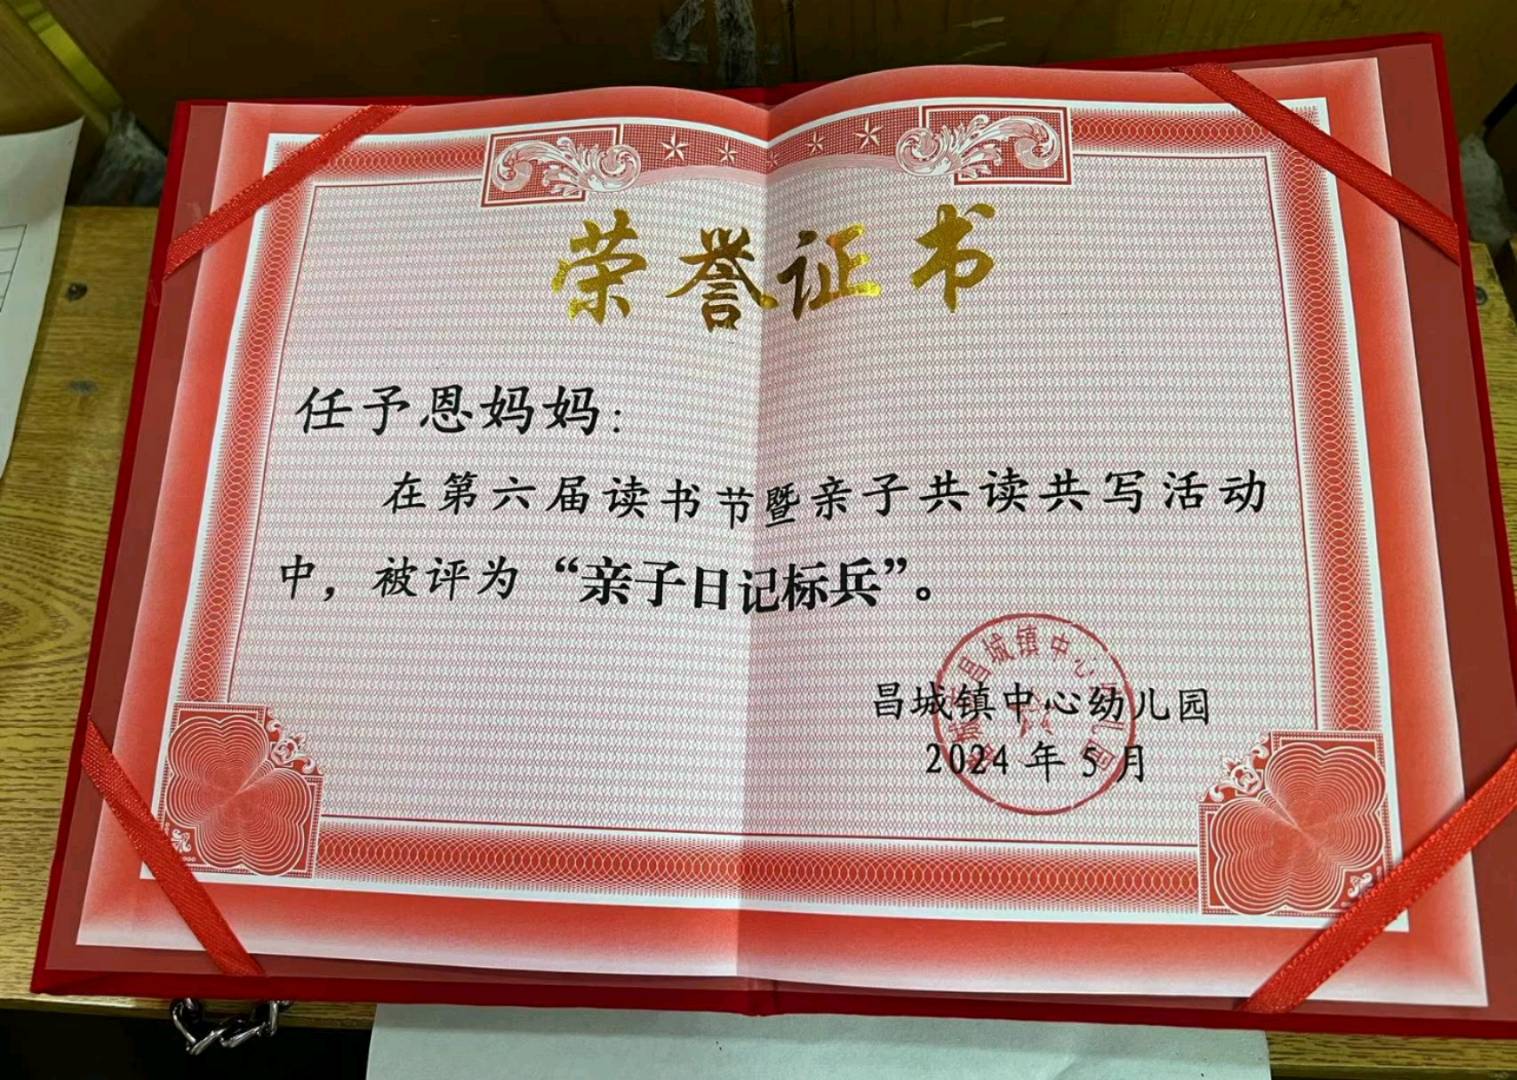 荣誉证书
任予恩妈妈：
在第六届读书节暨亲子共读共写活动
中，被评为“亲子日记标兵”。
昌城镇中心幼儿园
2024年5月